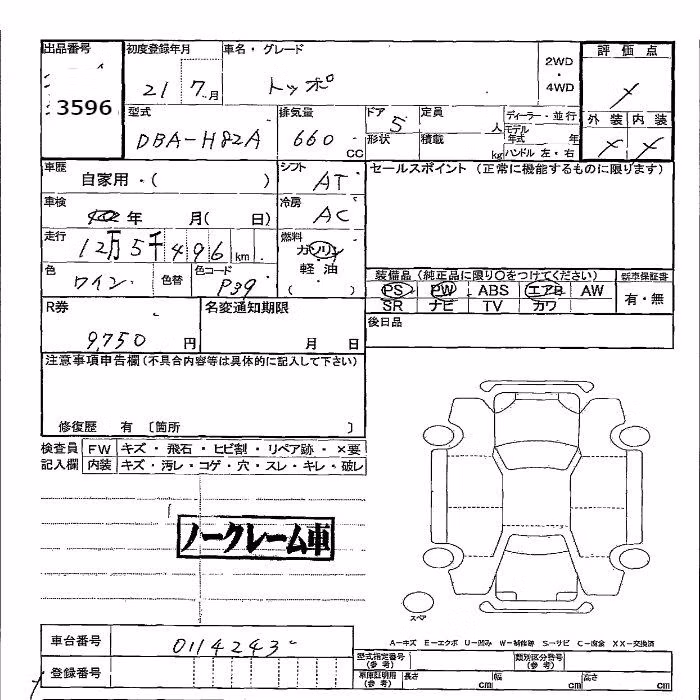 出品番号
3596
初度登録年月
21 7月
車名・グレード
トッポ
2WD
・
4WD
評価点
外装 内装
型式
DBA-H82A
排気量
660 CC
ドア 5
形状
定員 人
積載 kg
ディーラー・並行
モデル年式 年
ハンドル 左・右
車歴
自家用・( )
シフト
AT
セールスポイント (正常に機能するものに限ります)
車検
年 月( 日)
冷房
AC
走行
12万5千496km
燃料
ガソリン
軽油
( )
色
ワイン
色替
色コード
P39
装備品 (純正品に限り○をつけてください)
PS PW ABS エアB AW
SR ナビ TV カワ
新車保証書
有・無
R券
9,750 円
名変通知期限
月 日
後日品
注意事項申告欄(不具合内容等は具体的に記入して下さい)
修復歴 有 〔箇所 〕
検査員 FW キズ・飛石・ヒビ割・リペア跡・×要
記入欄 内装 キズ・汚レ・コゲ・穴・スレ・キレ・破レ
ノークレーム車
スペア
A-キズ E-エクボ U-凹み W-補修跡 S-サビ C-腐食 XX-交換済
車台番号
0114243
登録番号
型式指定番号
(参考)
類別区分番号
(参考)
車庫証明用
(参考)
長さ cm
幅 cm
高さ cm